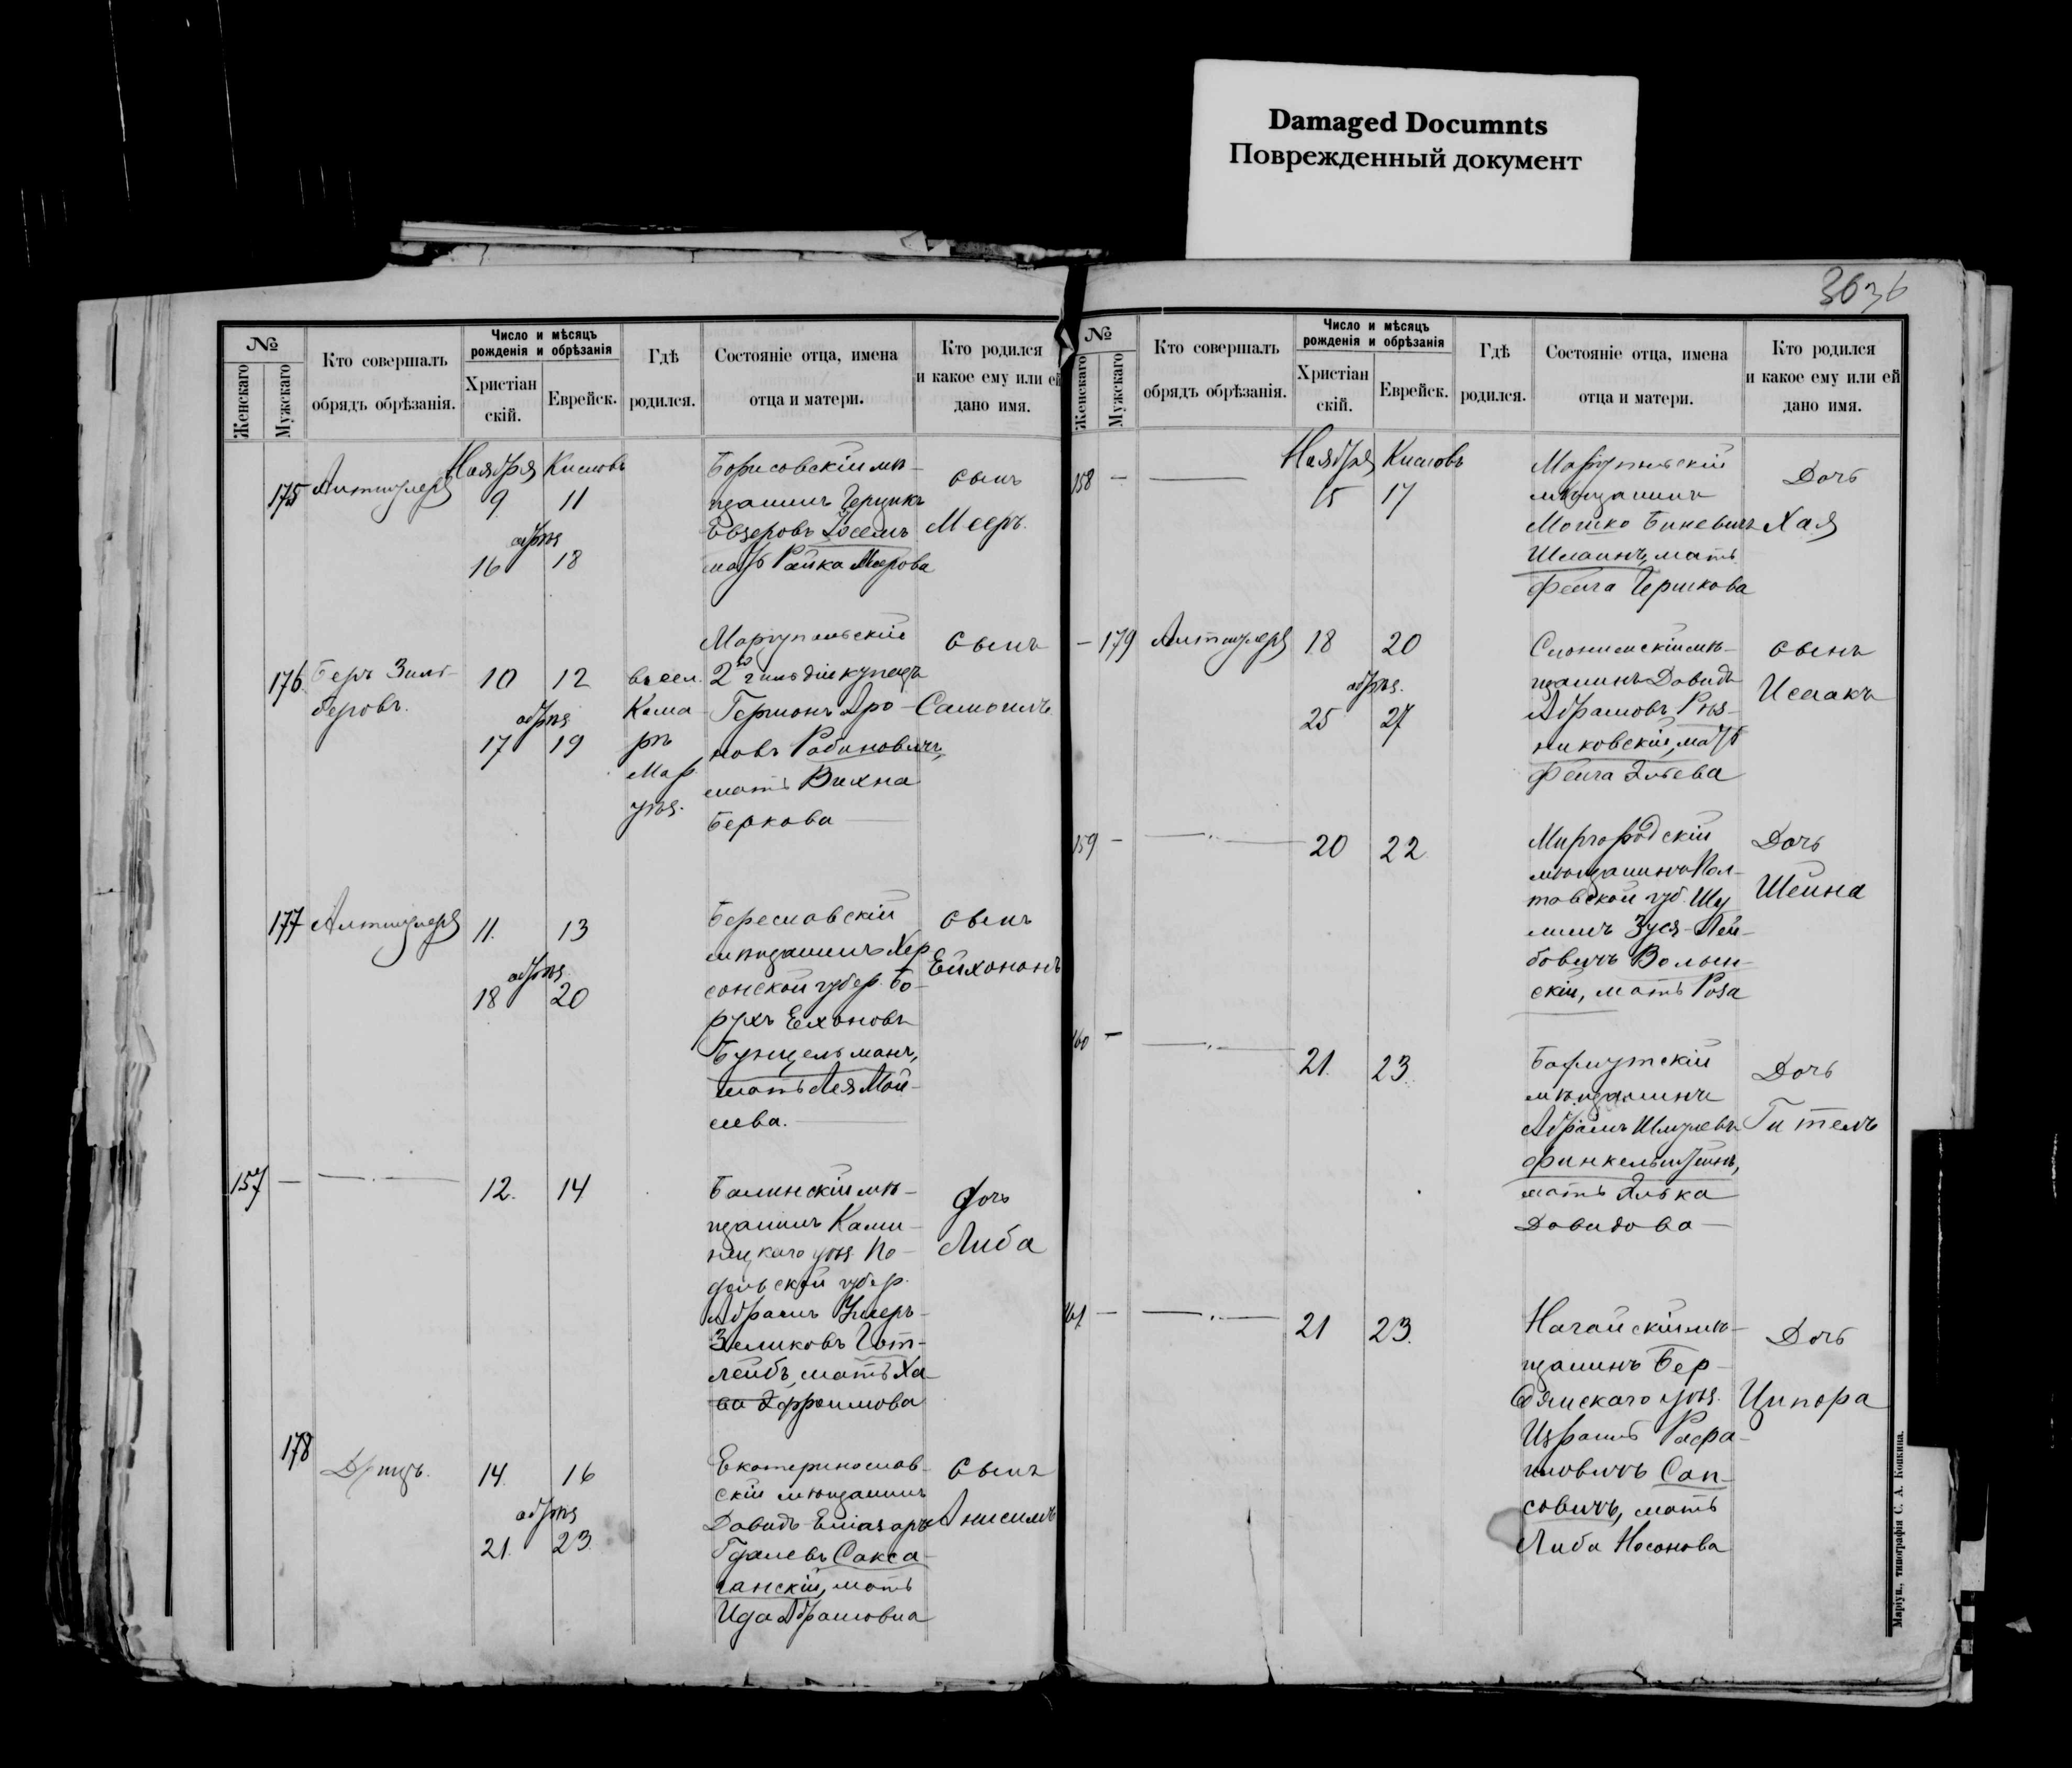 Damaged Documnts
Поврежденный документ
3636
№
Женскаго
Мужскаго
Кто совершалъ
обрядъ обрѣзанія.
Число и мѣсяцъ
рожденія и обрѣзанія
Христіан
скій.
Еврейск.
Гдѣ
родился.
Состояніе отца, имена
отца и матери.
Кто родился
и какое ему или ей
дано имя.
Ноября Кислевъ
175 Альтшулеръ 9 11
обрѣз
16 18
Борисовскій мѣ-
щанинъ Гершкъ
Евзеровъ
мать Райка Меерова
сынъ
Мееръ.
176 Беръ Зиль-
беровъ.
10 12
обрѣз
17 19
въ сел.
Кама
рѣ
Мар.
уѣз.
Маріупольскій
2й гильдіи купецъ
Германъ Аро-
новъ Рабиновичъ,
мать Вихна
Беркова
сынъ
Самоилъ
177 Альтшулеръ 11. 13
обрѣз.
18 20
Бериславскій
мѣщанинъ Хер
сонской губер. Бо-
рухъ Елхоновъ
Бунцельманъ,
мать Лея Мой-
сева.
сынъ
Елхононъ
157 — 12. 14
Балинскій мѣ-
щанинъ Каме-
нецкаго уѣз. По-
дольской губер.
Абрамъ Ушеръ-
Зеликовъ Гот-
лейбъ, мать Ха-
ва Эфроимова
дочь
Либа
178 14. 16
обрѣз
21. 23.
Екатеринослав-
скій мѣщанинъ
Давидъ-Еліазаръ
Гдалевъ Сакса-
ганскій, мать
Ида Абрамовна
сынъ
Анисимъ
№
Женскаго
Мужскаго
Кто совершалъ
обрядъ обрѣзанія.
Число и мѣсяцъ
рожденія и обрѣзанія
Христіан
скій.
Еврейск.
Гдѣ
родился.
Состояніе отца, имена
отца и матери.
Кто родился
и какое ему или ей
дано имя.
Ноября Кислевъ
158 — 15 17
Маріупольскій
мѣщанинъ
Мошко Биневичъ
мать
Фейга Гершкова
Дочь
Хая
— 179 Альтшулеръ 18 20
обрѣз.
25 27
Слонимскій мѣ-
щанинъ Давидъ
Абрамовъ Рѣз-
никовскій, мать
Фейга Эльева
сынъ
Исаакъ
159 — 20 22
Миргородскій
мѣщанинъ Пол-
тавской губ. Шу
лимъ Зуся-Лей-
бовичъ Волын-
скій, мать Роза
Дочь
Шейна
160 — 21. 23.
Бахмутскій
мѣщанинъ
Абрамъ Шмулевъ
Финкельштейнъ,
мать Элька
Давидова —
Дочь
Гителъ
161 — 21 23.
Ногайскій мѣ-
щанинъ Бер-
дянскаго уѣз.
Израиль Рафа-
иловичъ Сап-
совичъ, мать
Либа Носонова
Дочь
Ципора
Маріуп., типографія С. А. Копкина.